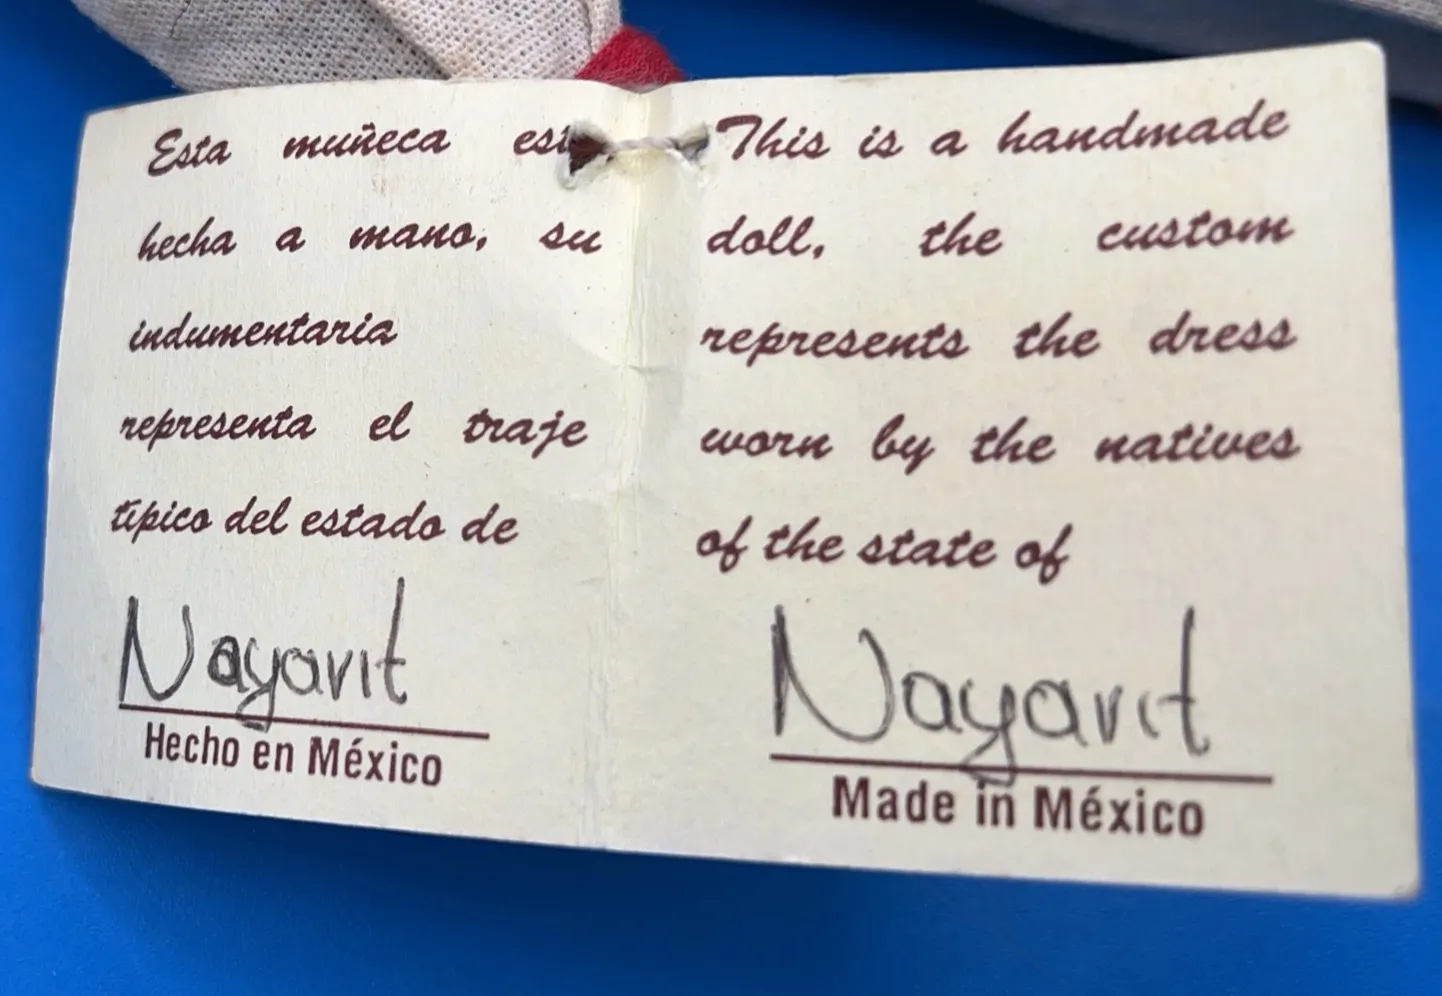 Esta muñeca
hecha a mano, su
indumentaria
representa el traje
típico del estado de
Nayarit
Hecho en México
This is a handmade
doll, the custom
represents the dress
worn by the natives
of the state of
Nayarit
Made in México